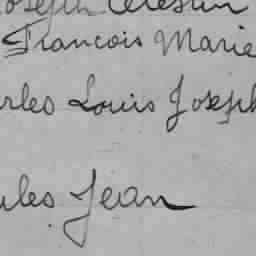 Joseph Célestin
François Marie
Charles Louis Joseph
Jules Jean